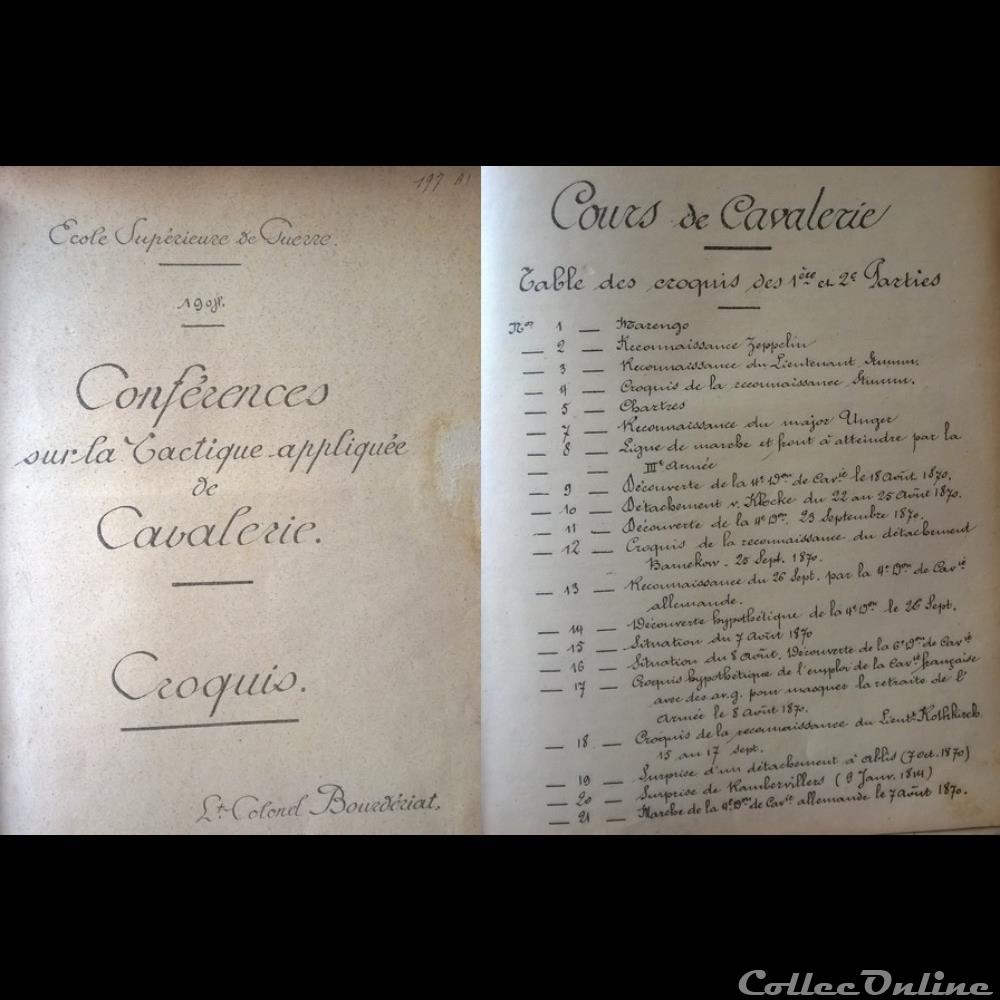 197 A1
Ecole Supérieure de Guerre.
Conférences
sur la Tactique appliquée
de
Cavalerie.
Croquis.
Lt Colonel Bourdériat.
Cours de Cavalerie
Table des croquis des 1ère et 2e Parties
Nos 1 — Marengo
— 2 — Reconnaissance Zeppelin
— 3 — Reconnaissance du Lieutenant Stumm.
— 4 — Croquis de la reconnaissance Stumm.
— 5 — Chartres
— 7 — Reconnaissance du major Unger
— 8 — Ligne de marche et front à atteindre par la
— — IIIe Armée
— 9 — Découverte de la 4e Don de Cavie le 18 Août 1870.
— 10 — Détachement v. Klocke du 22 au 25 Août 1870.
— 11 — Découverte de la 4e Don. 23 Septembre 1870.
— 12 — Croquis de la reconnaissance du détachement
Barnekow. 25 Sept. 1870.
— 13 — Reconnaissance du 26 Sept. par la 4e Don de Cavie
allemande.
— 14 — Découverte hypothétique de la 4e Don le 26 Sept.
— 15 — Situation du 7 Août 1870
— 16 — Situation du 8 Août. Découverte de la 6e Don de Cavie
— 17 — Croquis hypothétique de l'emploi de la Cavie française
avec des av.g. pour masquer la retraite de l'
Armée le 8 Août 1870.
— 18 — Croquis de la reconnaissance du Lieutt Rothkirch
15 au 17 sept.
— 19 — Surprise d'un détachement à Ablis (7 oct. 1870)
— 20 — Surprise de Rambervillers (9 Janv. 1814)
— 21 — Marche de la 4e Don de Cavie allemande le 7 Août 1870.
CollecOnline